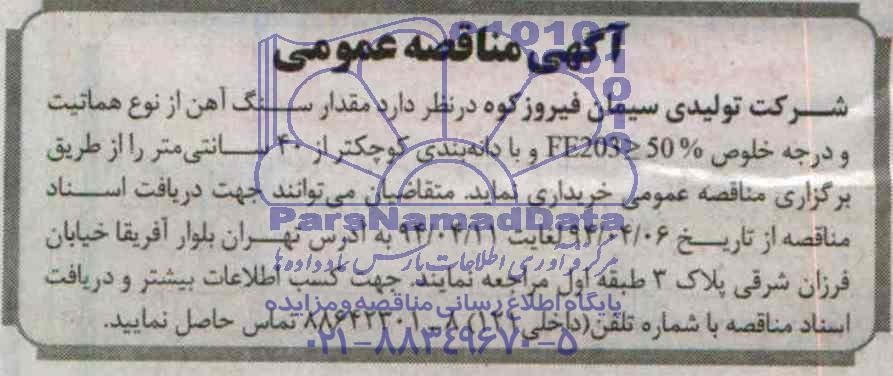 آگهی مناقصه عمومی
شرکت تولیدی سیمان فیروزکوه درنظر دارد مقدار سنگ آهن از نوع هماتیت
و درجه خلوص FE203≥50% و با دانه‌بندی کوچکتر از ۴۰ سانتی‌متر را از طریق
برگزاری مناقصه عمومی خریداری نماید. متقاضیان می‌توانند جهت دریافت اسناد
مناقصه از تاریخ ۹۴/۰۴/۰۶ لغایت ۹۴/۰۴/۱۱ به آدرس تهران بلوار آفریقا خیابان
فرزان شرقی پلاک ۳ طبقه اول مراجعه نمایند. جهت کسب اطلاعات بیشتر و دریافت
اسناد مناقصه با شماره تلفن (داخلی ۱۲۲) ۸-۸۸۶۴۲۳۰۱ تماس حاصل نمایید.
ParsNamadData
مرکز فرآوری اطلاعات پارس نماد داده‌ها
پایگاه اطلاع رسانی مناقصه و مزایده
۰۲۱-۸۸۳۴۹۶۷۰-۵